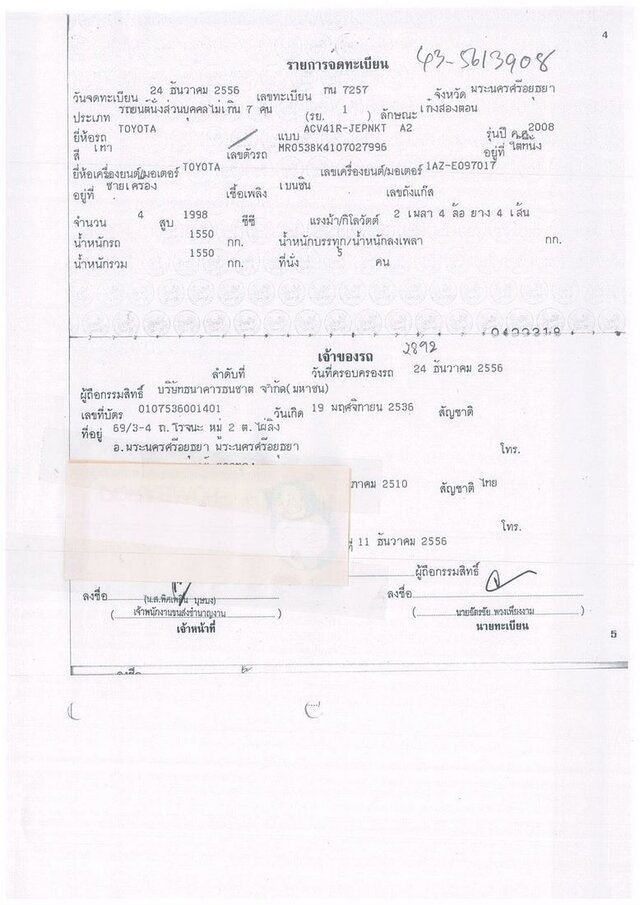 4
รายการจดทะเบียน 43-5613908
วันจดทะเบียน 24 ธันวาคม 2556 เลขทะเบียน กน 7257 จังหวัด พระนครศรีอยุธยา
ประเภท รถยนต์นั่งส่วนบุคคลไม่เกิน 7 คน (รย. 1 ) ลักษณะ เก๋งสองตอน
ยี่ห้อรถ TOYOTA แบบ ACV41R-JEPNKT A2 รุ่นปี ค.ศ. 2008
สี เทา เลขตัวรถ MR053BK4107027996 อยู่ที่
ยี่ห้อเครื่องยนต์/มอเตอร์ TOYOTA เลขเครื่องยนต์/มอเตอร์ 1AZ-E097017
อยู่ที่ ซ้ายเครื่อง เชื้อเพลิง เบนซิน เลขถังแก๊ส
จำนวน 4 สูบ 1998 ซีซี แรงม้า/กิโลวัตต์ 2 เพลา 4 ล้อ ยาง 4 เส้น
น้ำหนักรถ 1550 กก. น้ำหนักบรรทุก/น้ำหนักลงเพลา กก.
น้ำหนักรวม 1550 กก. ที่นั่ง 5 คน
เจ้าของรถ 2892
ลำดับที่ วันที่ครอบครองรถ 24 ธันวาคม 2556
ผู้ถือกรรมสิทธิ์ บริษัทธนาคารธนชาต จำกัด(มหาชน)
เลขที่บัตร 0107536001401 วันเกิด 19 พฤศจิกายน 2536 สัญชาติ
ที่อยู่ 69/3-4 ถ.โรจนะ หมู่ 2 ต.ไผ่ลิง
อ.พระนครศรีอยุธยา พระนครศรีอยุธยา โทร.
ภาคม 2510 สัญชาติ ไทย
โทร.
11 ธันวาคม 2556
ผู้ถือกรรมสิทธิ์
ลงชื่อ ลงชื่อ
( เจ้าพนักงานขนส่งชำนาญงาน ) ( นายฉัตรชัย พวงเพียงงาม )
เจ้าหน้าที่ นายทะเบียน
5